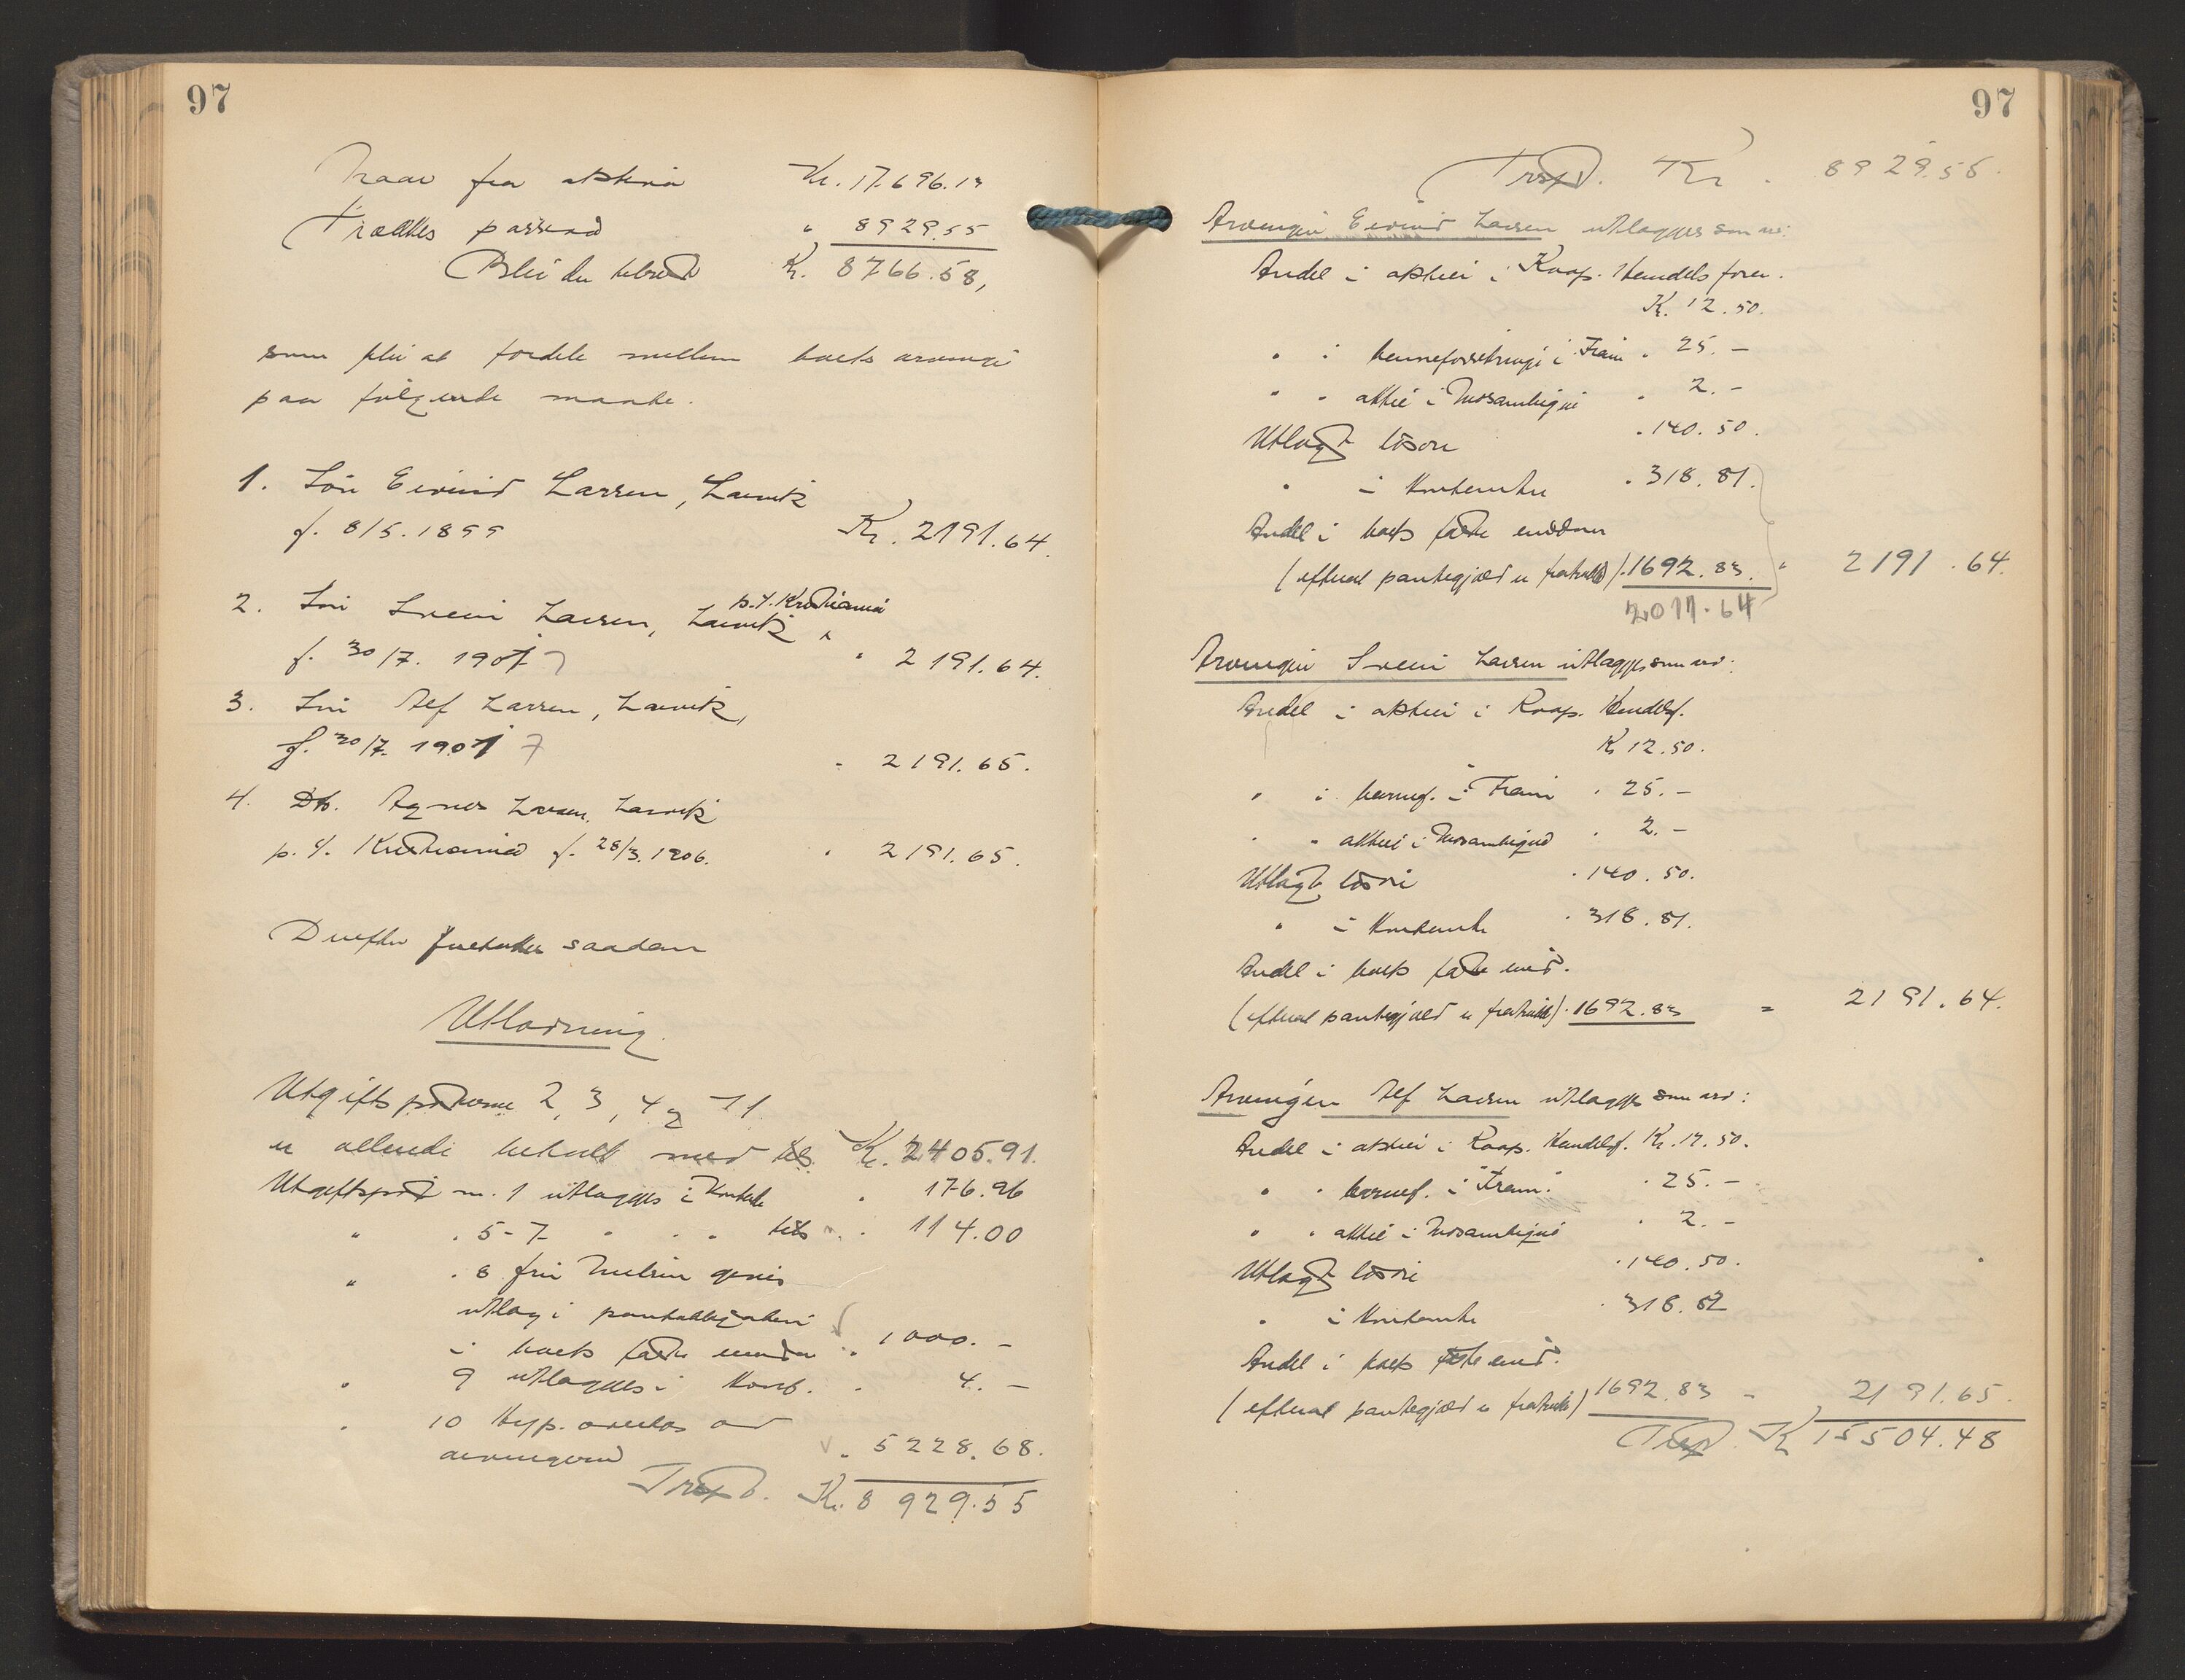 97
Naar fra aktiva Kr. 17.696.13
Trækkes passiva " 8929.55
Blir der tilrest Kr. 8766.58,
som blir at fordele mellem boets arvinger
paa følgende maate.
1. Søn Eivind Larsen, Larvik
f. 8/5. 1899 Kr. 2191.64.
2. Søn Svein Larsen, Larvik p.t. Kristiania
f. 30/7. 1907 " 2191.64.
3. Søn Alf Larsen, Larvik,
f. 30/7. 1907 7 " 2191.65.
4. Dtr. Agnes Larsen, Larvik
p.t. Kristiania f. 28/3. 1906. " 2191.65.
Derefter foretages saadan
Utlodning
Utgiftsposterne 2, 3, 4 og 11
er allerede betalt med tils. Kr. 2405.91.
Utgiftspost nr. 1 utlægges i Kontant " 176.96
" " 5-7 " " " tils " 114.00
" " 8 fru Nielsen gives
utlæg i pantobligation
i boets faste eiendom " 1000.-
" 9 utlægges i Kont. " 4.-
" 10 Hyp. overtas av
arvingerne " 5228.68.
Trsp. Kr. 8929.55
97
Trsp. Kr. 8929.55.
Arvingen Eivind Larsen utlægges som arv:
Andel i aktier i Koop. Handelsforen.
Kr. 12.50.
" i barneforsikring i Fram " 25.-
" " aktie i Mosambique " 2.-
Utlagt løsøre " 140.50.
" i Kontanter " 318.81.
Andel i boets faste eiendom
(efterat pantegjæld er fratrukket) " 1692.83. " 2191.64.
2011.64
Arvingen Svein Larsen utlægges som arv:
Andel i aktier i Koop. Handelsf.
Kr 12.50.
" i barnef. i Fram " 25.-
" " aktie i Mosambique " 2.-
Utlagt løsøre " 140.50.
" i Kontanter " 318.81.
Andel i boets faste eiend.
(efterat pantegjæld er fratrukket) " 1692.83 = 2191.64.
Arvingen Alf Larsen utlægges som arv:
Andel i aktier i Koop. Handelsf. Kr. 12.50.
" " barnef. i "Fram" " 25.-
" " aktie i Mosambique " 2.-
Utlagt løsøre " 140.50.
" i Kontanter " 318.82
Andel i boets faste eiend.
(efterat pantegjæld er fratrukket) 1692.83 - 2191.65.
Trsp. Kr 15504.48